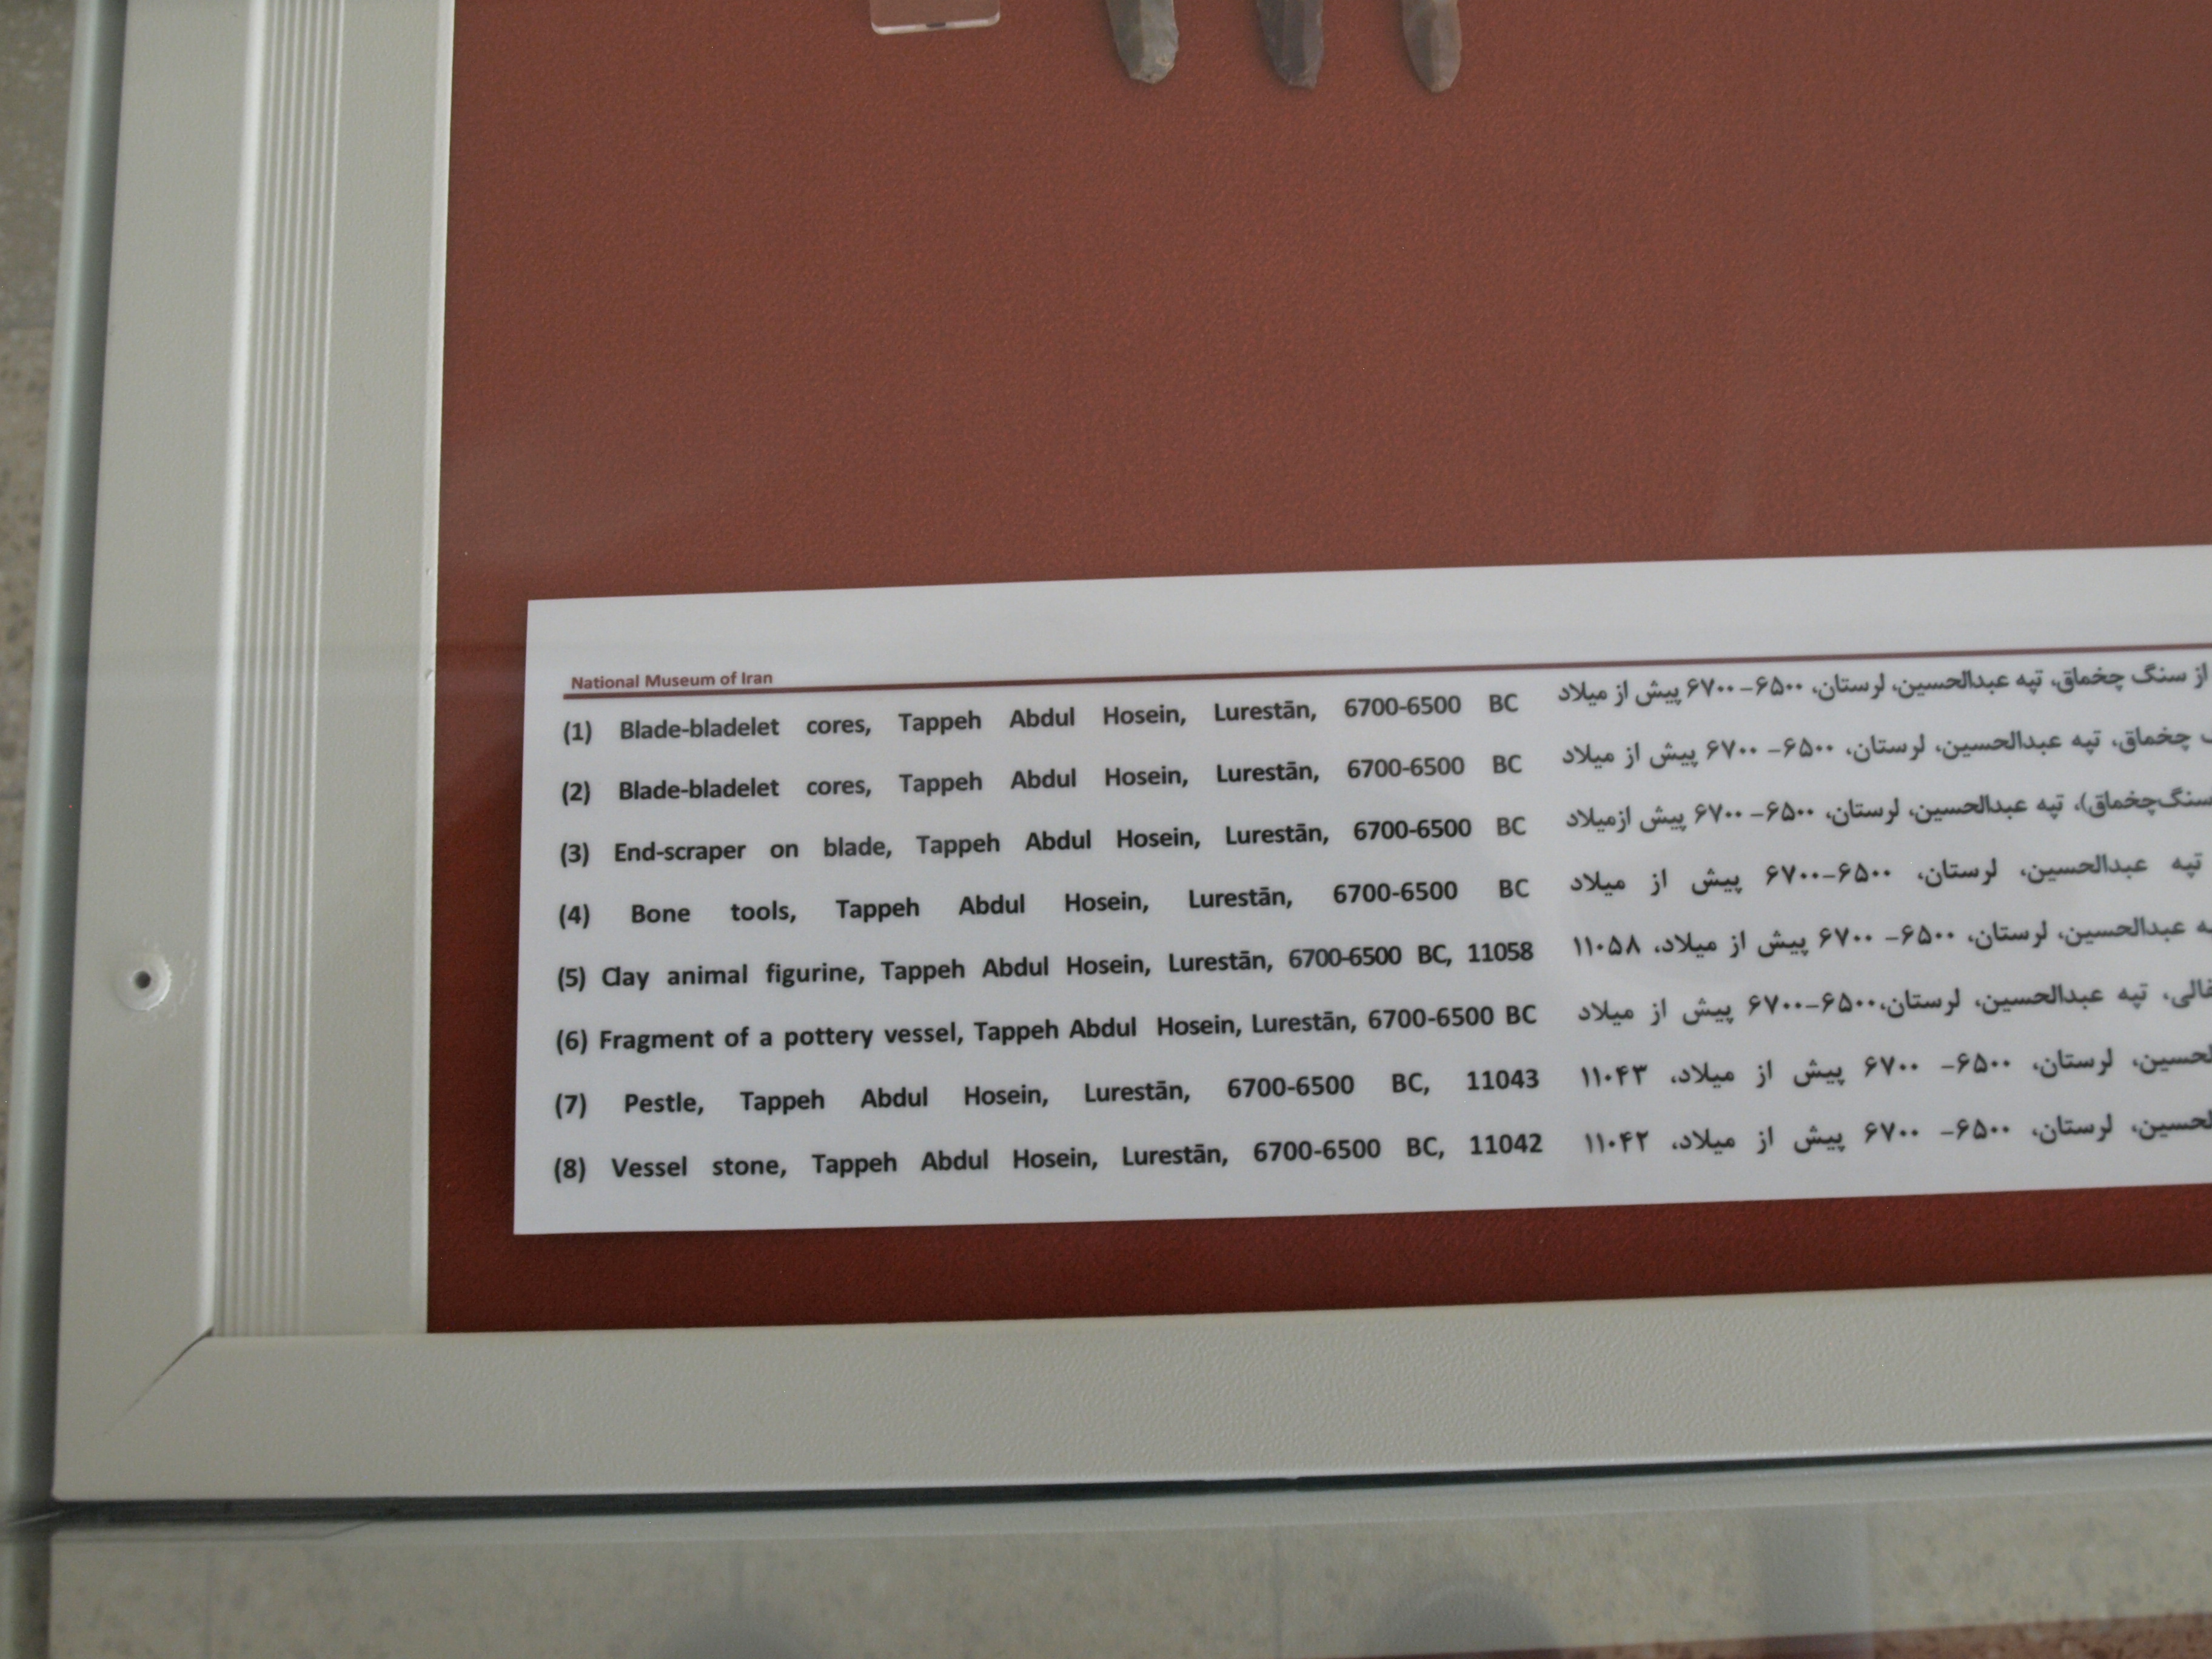 National Museum of Iran
(1) Blade-bladelet cores, Tappeh Abdul Hosein, Lurestān, 6700-6500 BC
(2) Blade-bladelet cores, Tappeh Abdul Hosein, Lurestān, 6700-6500 BC
(3) End-scraper on blade, Tappeh Abdul Hosein, Lurestān, 6700-6500 BC
(4) Bone tools, Tappeh Abdul Hosein, Lurestān, 6700-6500 BC
(5) Clay animal figurine, Tappeh Abdul Hosein, Lurestān, 6700-6500 BC, 11058
(6) Fragment of a pottery vessel, Tappeh Abdul Hosein, Lurestān, 6700-6500 BC
(7) Pestle, Tappeh Abdul Hosein, Lurestān, 6700-6500 BC, 11043
(8) Vessel stone, Tappeh Abdul Hosein, Lurestān, 6700-6500 BC, 11042
از سنگ چخماق، تپه عبدالحسین، لرستان، ۶۵۰۰-۶۷۰۰ پیش از میلاد
چخماق، تپه عبدالحسین، لرستان، ۶۵۰۰- ۶۷۰۰ پیش از میلاد
سنگ‌چخماق)، تپه عبدالحسین، لرستان، ۶۵۰۰- ۶۷۰۰ پیش ازمیلاد
تپه عبدالحسین، لرستان، ۶۵۰۰-۶۷۰۰ پیش از میلاد
عبدالحسین، لرستان، ۶۵۰۰- ۶۷۰۰ پیش از میلاد، ۱۱۰۵۸
تپه عبدالحسین، لرستان،۶۵۰۰-۶۷۰۰ پیش از میلاد
لرستان، ۶۵۰۰- ۶۷۰۰ پیش از میلاد، ۱۱۰۴۳
لرستان، ۶۵۰۰- ۶۷۰۰ پیش از میلاد، ۱۱۰۴۲